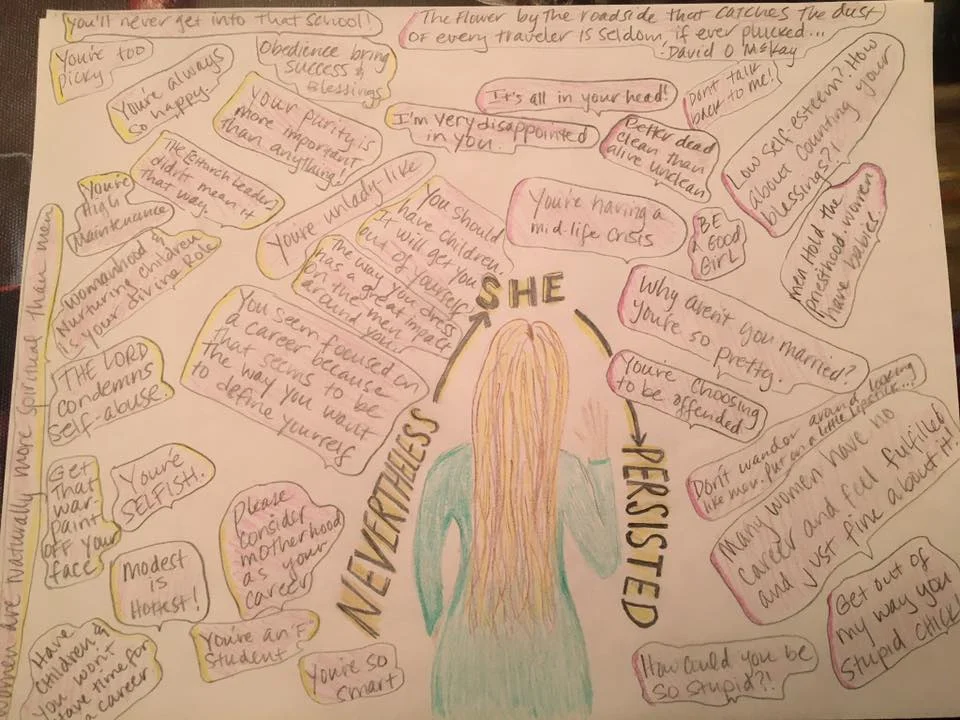 You'll never get into that school!
The flower by the roadside that catches the dust
of every traveler is seldom, if ever plucked...
David O McKay
You're too
picky
You're always
so happy.
Obedience bring
success &
Blessings
It's all in your head!
Don't talk
back to me!
Low self-esteem? How
about counting your
blessings?!
Your purity is
more important
than anything!
I'm very disappointed
in you.
Better dead
clean than
alive unclean
The church leader
didn't mean it
that way.
You're
High
Maintenance
You're unlady-like
You should
have children.
It will get you
out of yourself
You're having a
mid-life crisis
BE
a Good
Girl
Men Hold the
Priesthood-women
have babies
Womanhood &
Nurturing children
is your divine Role
The way you dress
has a great impact
on the men
around you.
SHE
Why aren't you married?
You're so pretty.
You seem focused on
a career because
that seems to be
the way you want
to define yourself
THE LORD
condemns
self-abuse.
You're choosing
to be offended
Don't wander around looking
like men. Put on a little lipstick...
NEVERTHELESS
PERSISTED
Many women have no
career and feel fulfilled
and just fine about it!
Get
That
war
paint
off your
face!
You're
SELFISH.
Please
consider
motherhood
as your
career
Modest
is
Hottest!
Get out of
my way you
stupid chick!
You're an F
student
You're so
smart
How could you be
so stupid?!
Have
children &
you won't
have time for
a career
Women are Naturally more spiritual than men